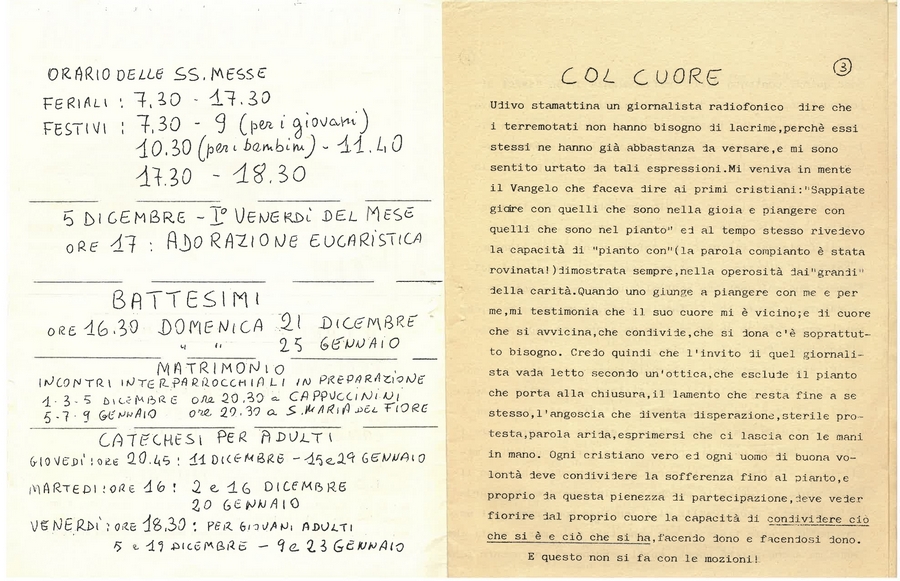 ORARIO DELLE SS. MESSE
FERIALI : 7,30 - 17.30
FESTIVI : 7,30 - 9 (per i giovani)
10.30 (per i bambini) - 11.40
17.30 - 18.30
5 DICEMBRE - I° VENERDÌ DEL MESE
ORE 17 : ADORAZIONE EUCARISTICA
BATTESIMI
ORE 16.30 DOMENICA 21 DICEMBRE
" " 25 GENNAIO
MATRIMONIO
INCONTRI INTERPARROCCHIALI IN PREPARAZIONE
1-3-5 DICEMBRE ore 20.30 a CAPPUCCININI
5-7-9 GENNAIO ore 20.30 a S. MARIA DEL FIORE
CATECHESI PER ADULTI
GIOVEDÌ : ORE 20.45 : 11 DICEMBRE - 15 e 29 GENNAIO
MARTEDÌ : ORE 16 : 2 e 16 DICEMBRE
20 GENNAIO
VENERDÌ : ORE 18,30 : PER GIOVANI ADULTI
5 e 19 DICEMBRE - 9 e 23 GENNAIO
3
COL CUORE
Udivo stamattina un giornalista radiofonico dire che
i terremotati non hanno bisogno di lacrime,perchè essi
stessi ne hanno già abbastanza da versare,e mi sono
sentito urtato da tali espressioni.Mi veniva in mente
il Vangelo che faceva dire ai primi cristiani:"Sappiate
gioire con quelli che sono nella gioia e piangere con
quelli che sono nel pianto" ed al tempo stesso rivedevo
la capacità di "pianto con"(la parola compianto è stata
rovinata!)dimostrata sempre,nella operosità dai"grandi"
della carità.Quando uno giunge a piangere con me e per
me,mi testimonia che il suo cuore mi è vicino;e di cuore
che si avvicina,che condivide,che si dona c'è soprattut-
to bisogno. Credo quindi che l'invito di quel giornali-
sta vada letto secondo un'ottica,che esclude il pianto
che porta alla chiusura,il lamento che resta fine a se
stesso,l'angoscia che diventa disperazione,sterile pro-
testa,parola arida,esprimersi che ci lascia con le mani
in mano. Ogni cristiano vero ed ogni uomo di buona vo-
lontà deve condividere la sofferenza fino al pianto,e
proprio da questa pienezza di partecipazione,deve veder
fiorire dal proprio cuore la capacità di condividere ciò
che si è e ciò che si ha,facendo dono e facendosi dono.
E questo non si fa con le mozioni!